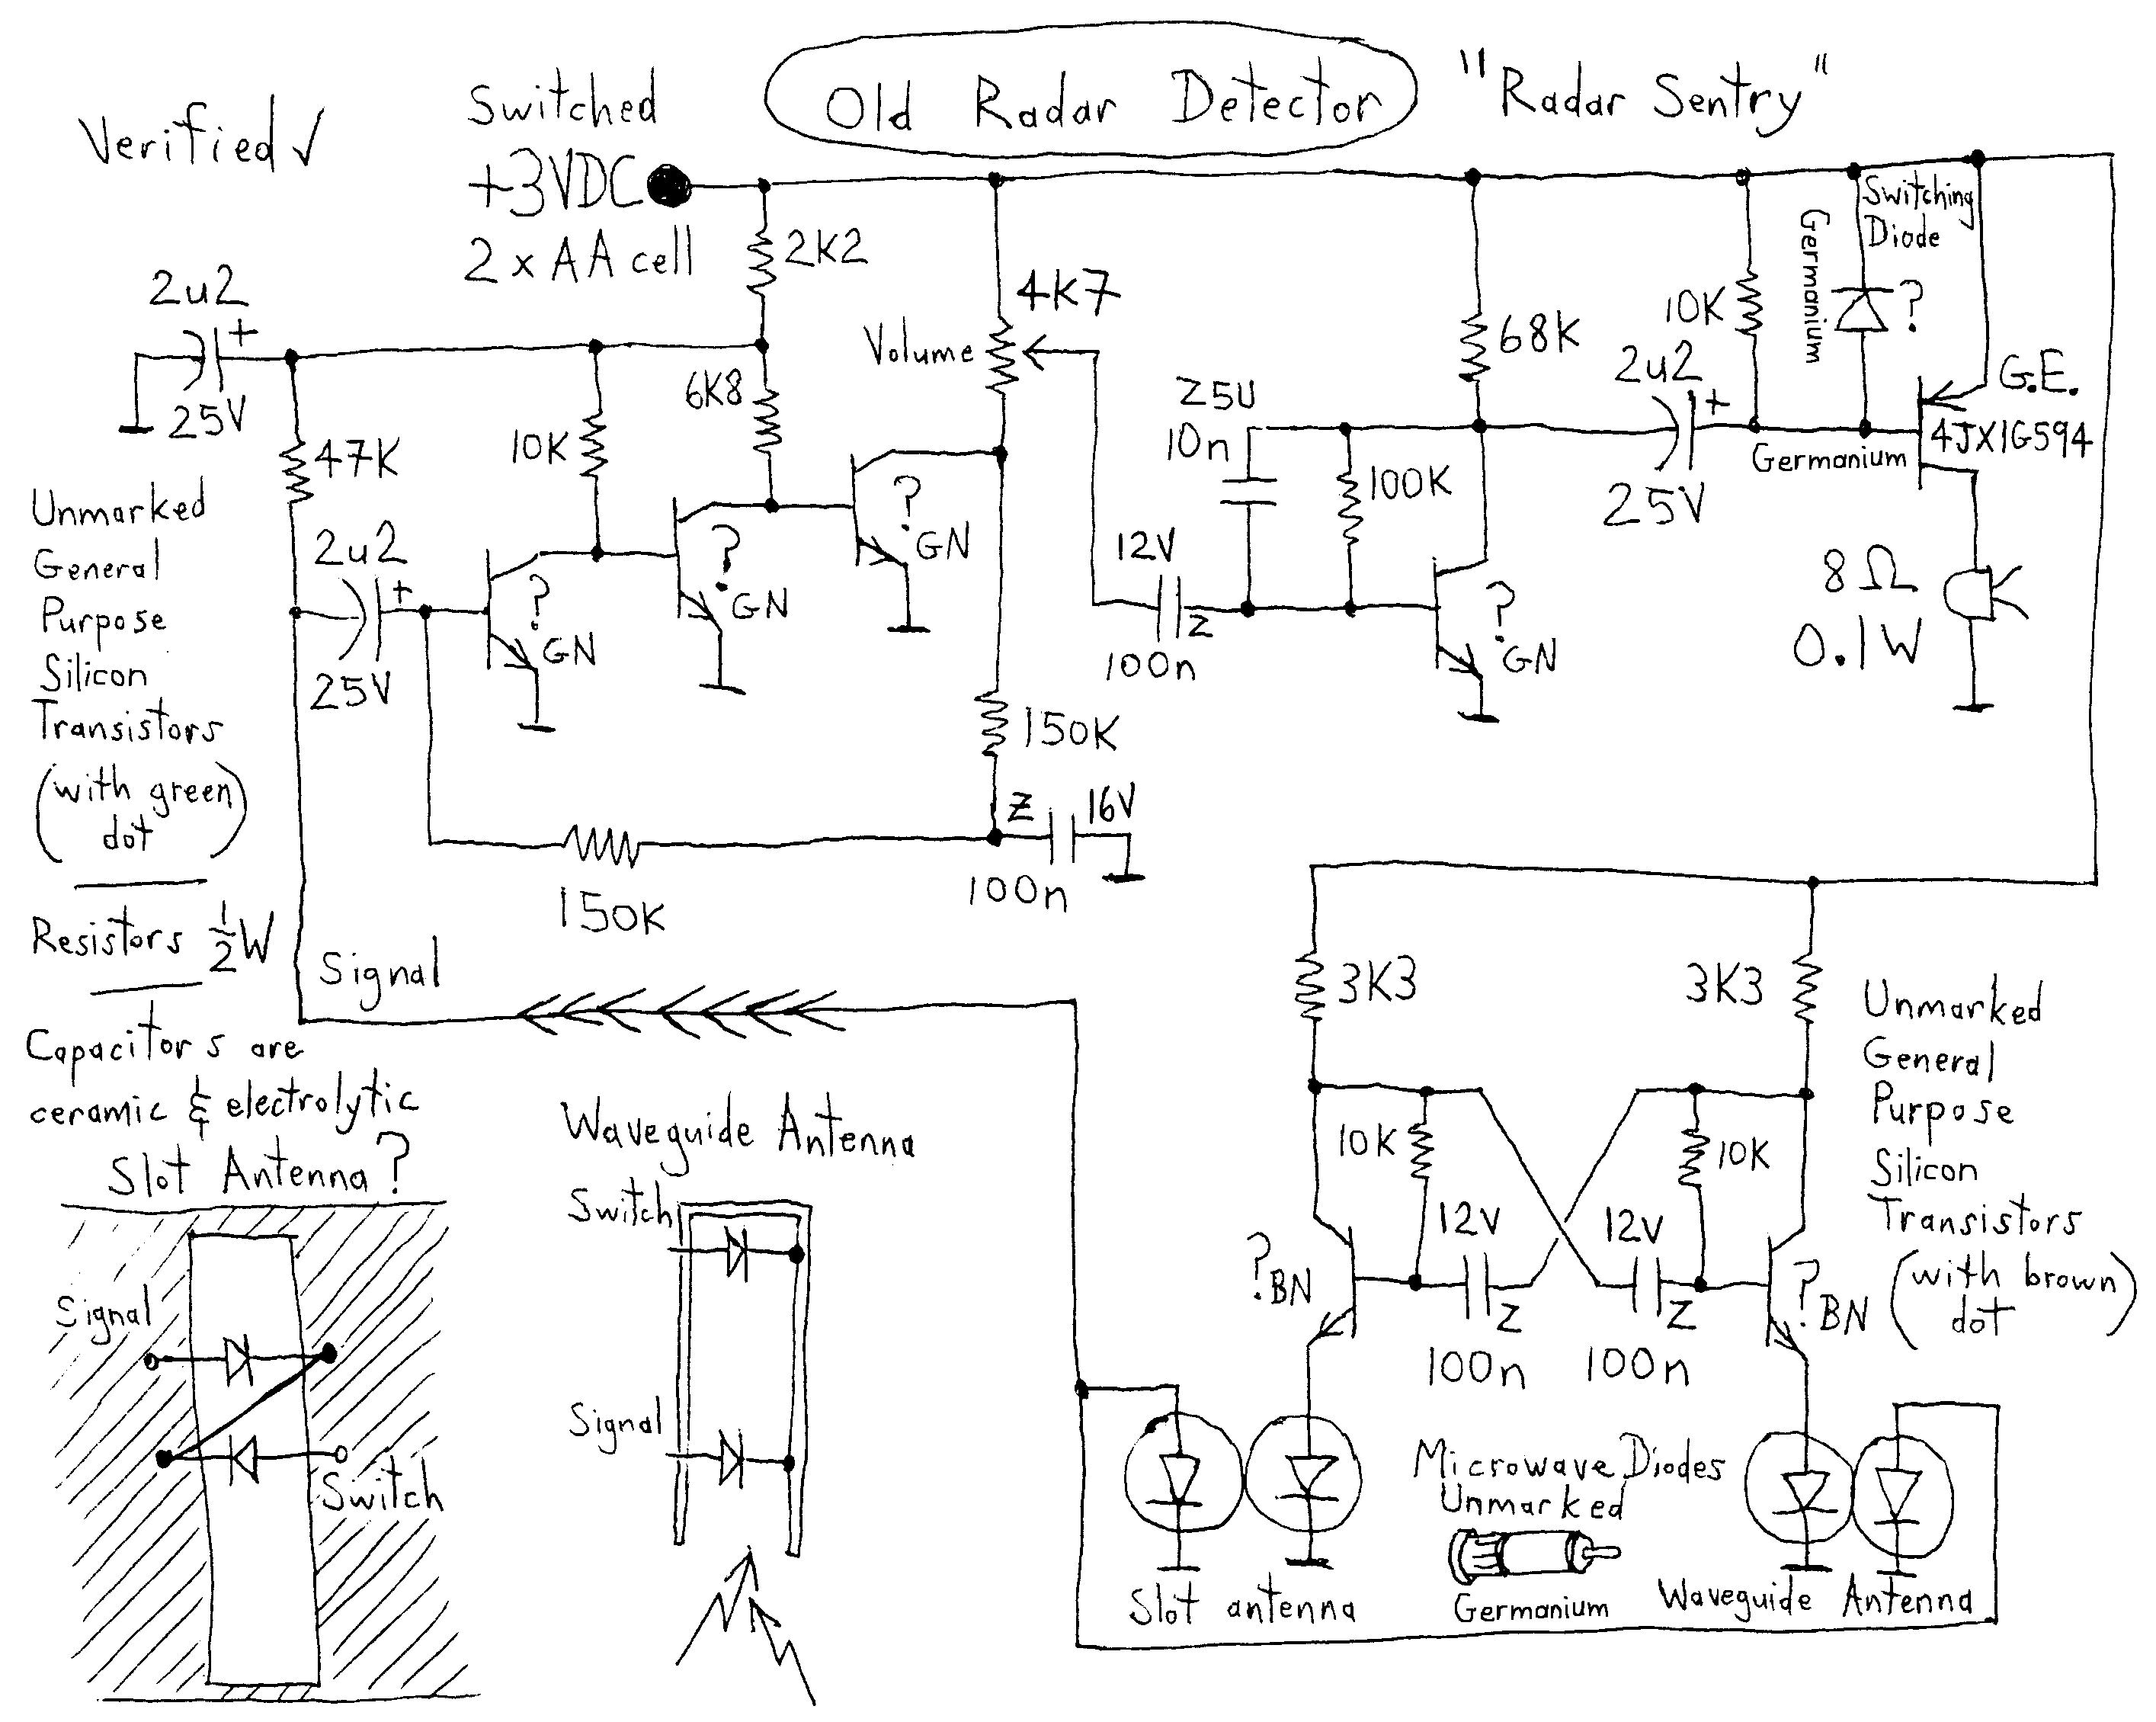 Old Radar Detector
"Radar Sentry"
Verified ✓
Switched
+3VDC
2 x AA cell
2K2
4K7
Volume
68K
10K
Germanium
Switching
Diode
?
G.E.
4JX1G594
Germanium
2u2
+
25V
2u2
+
25V
47K
10K
6K8
Z5U
10n
100K
2u2
+
25V
?
GN
?
GN
?
GN
12V
Z
100n
?
GN
8Ω
0.1W
150K
Z
16V
100n
150K
Unmarked
General
Purpose
Silicon
Transistors
(with green)
dot
Resistors ½W
Capacitors are
ceramic & electrolytic
Signal
3K3
3K3
10K
10K
12V
12V
?
BN
Z
Z
?
BN
100n
100n
Unmarked
General
Purpose
Silicon
Transistors
(with brown)
dot
Slot Antenna?
Signal
Switch
Waveguide Antenna
Switch
Signal
Microwave Diodes
Unmarked
Germanium
Slot antenna
Waveguide Antenna